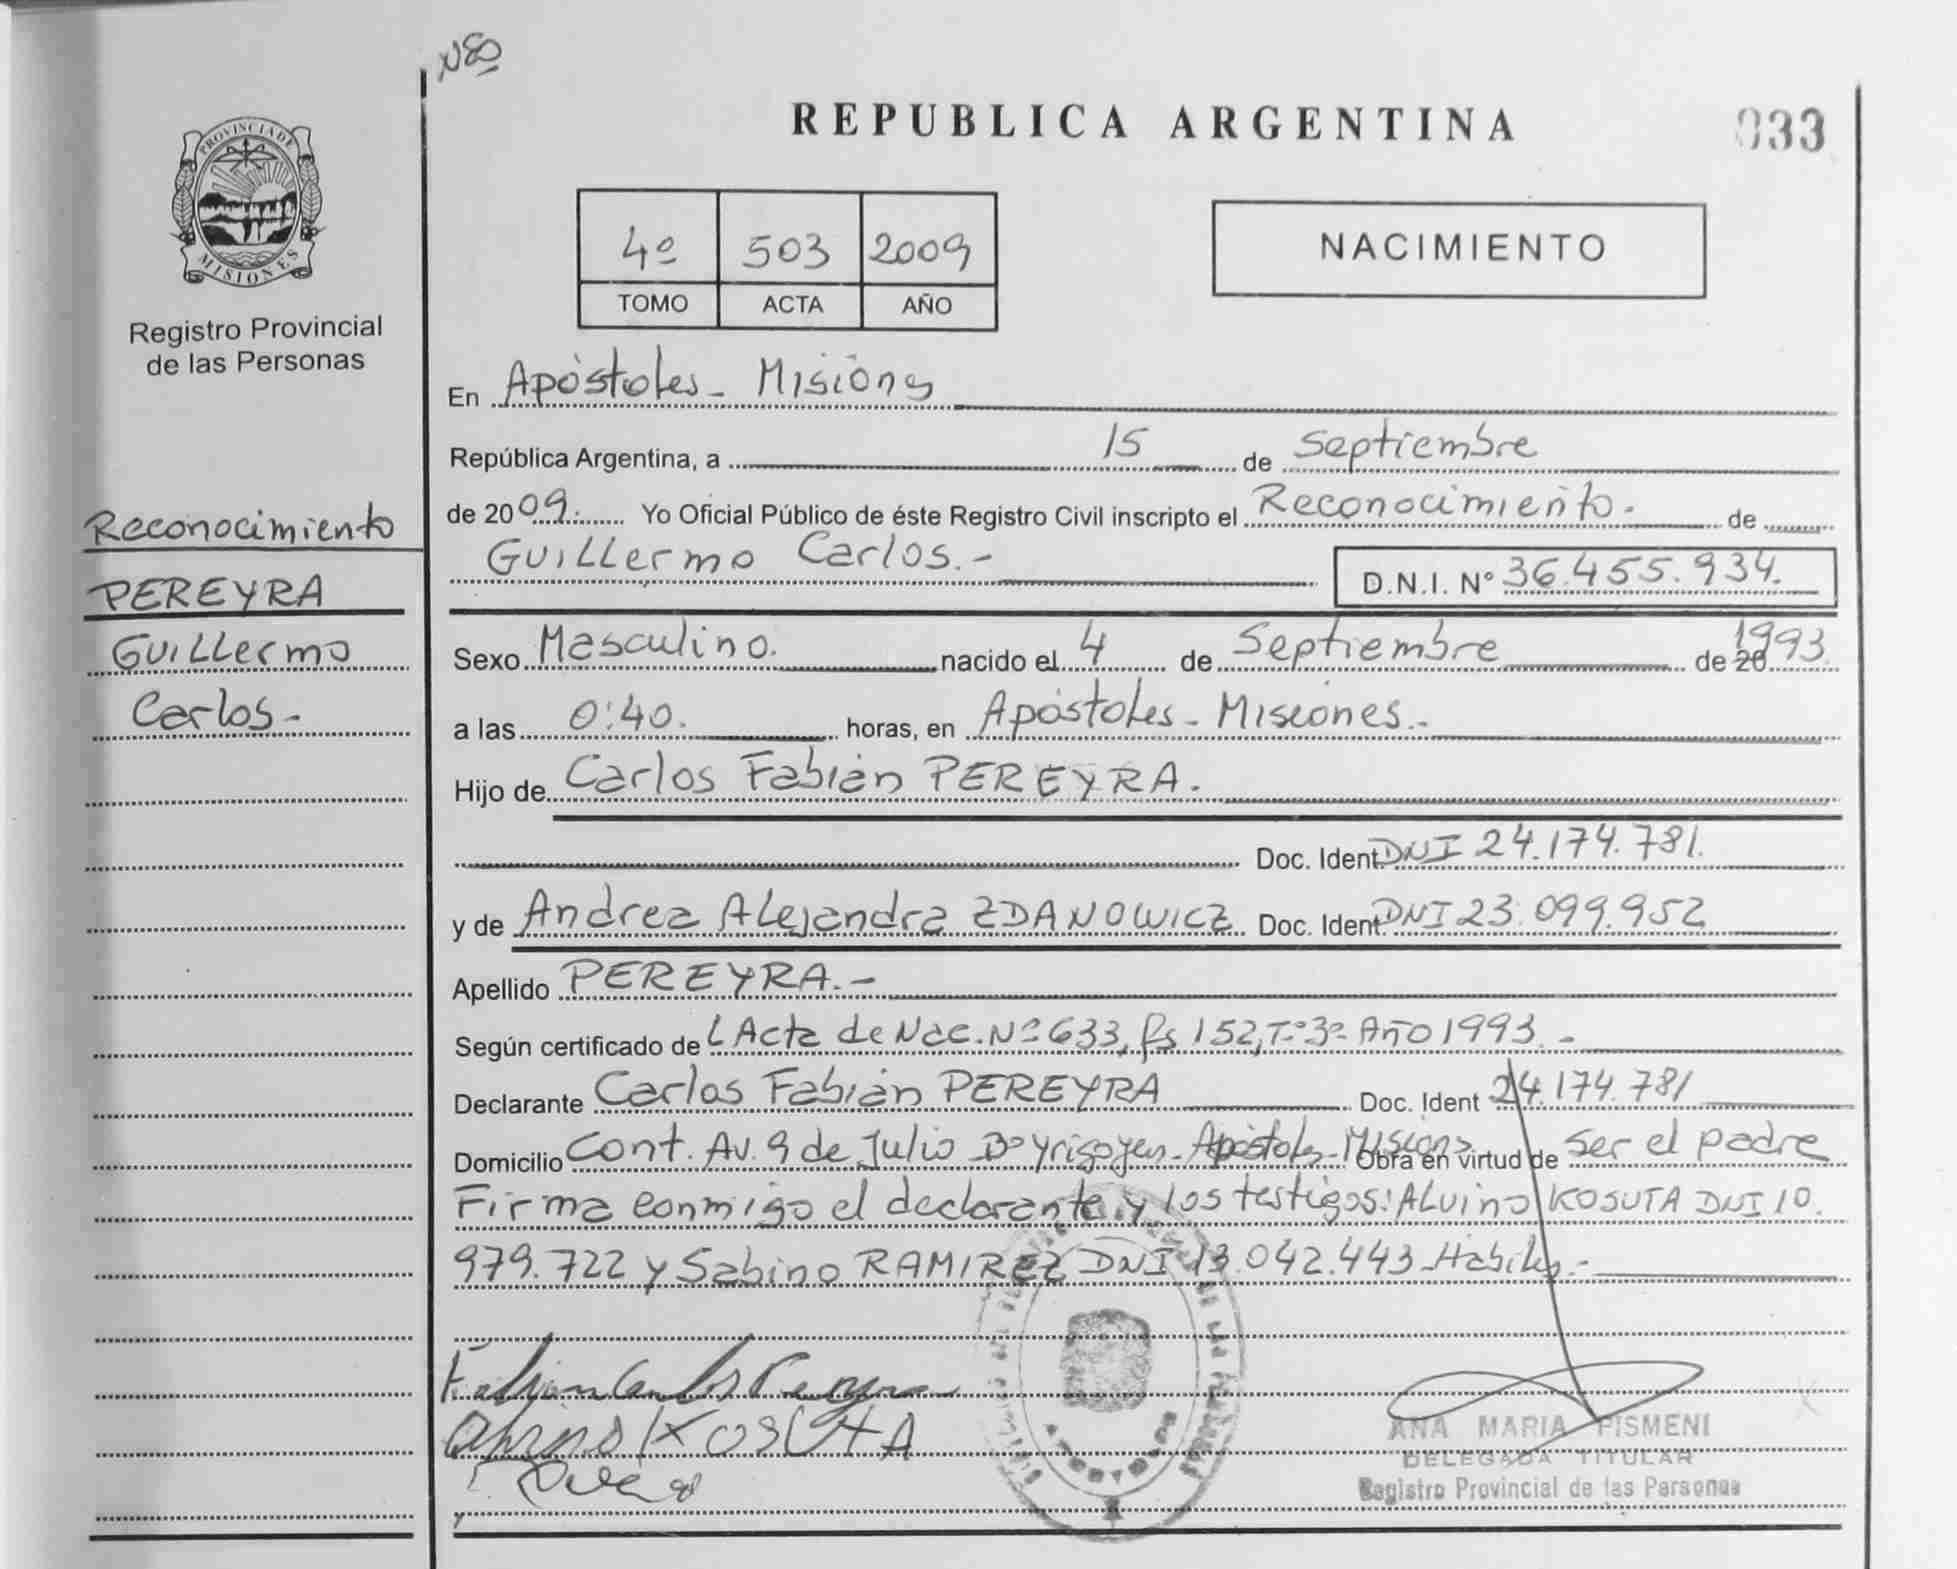 Nº
REPUBLICA ARGENTINA
033
PROVINCIA DE
MISIONES
Registro Provincial
de las Personas
4º 503 2009
TOMO ACTA AÑO
NACIMIENTO
En Apóstoles - Misiones
República Argentina, a 15 de Septiembre
de 2009. Yo Oficial Público de éste Registro Civil inscripto el Reconocimiento.- de
Guillermo Carlos.-
D.N.I. N° 36.455.934.
Reconocimiento
PEREYRA
Guillermo
Carlos-
Sexo Masculino. nacido el 4 de Septiembre de 20 1993.
a las 0:40. horas, en Apóstoles - Misiones.-
Hijo de Carlos Fabián PEREYRA.
Doc. Ident. DNI 24.174.781.
y de Andrea Alejandra ZDANOWICZ Doc. Ident. DNI 23.099.952
Apellido PEREYRA.-
Según certificado de Acta de Nac. Nº 633, fs 152, Tº 3º Año 1993.-
Declarante Carlos Fabián PEREYRA Doc. Ident 24.174.781
Domicilio Cont. Av. 9 de Julio Bº Yrigoyen - Apóstoles - Misiones Obra en virtud de ser el padre
Firma conmigo el declarante y los testigos: ALvino KOSUTA DNI 10.
979.722 y Sabino RAMIREZ DNI 13.042.443 Hábiles.-
Fabian Carlos Pereyra
KOSUTA
ANA MARIA PISMENI
DELEGADA TITULAR
Registro Provincial de las Personas